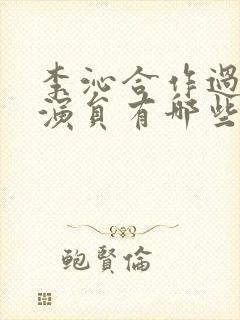 李沁合作過
演員有哪些
鲍賢倫